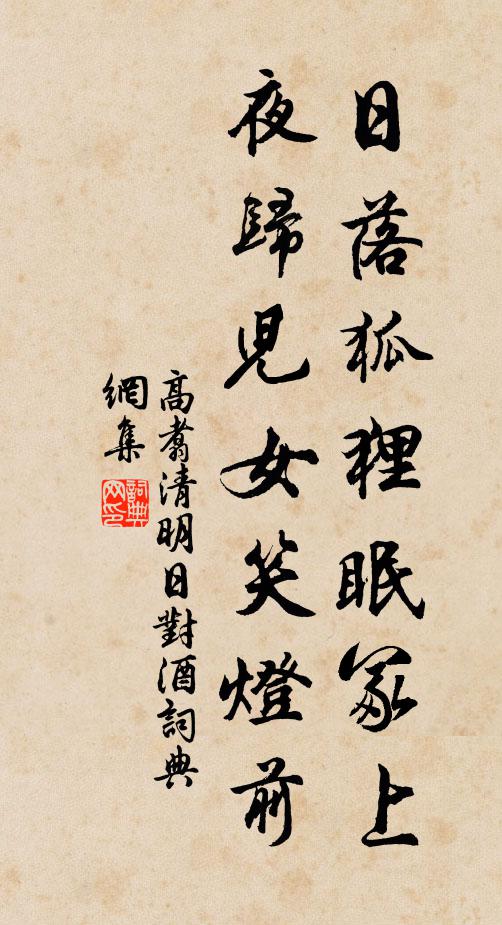 日落狐狸眠冢上
夜歸兒女笑燈前
高翥清明日對酒詞典
網集
詞典
网印